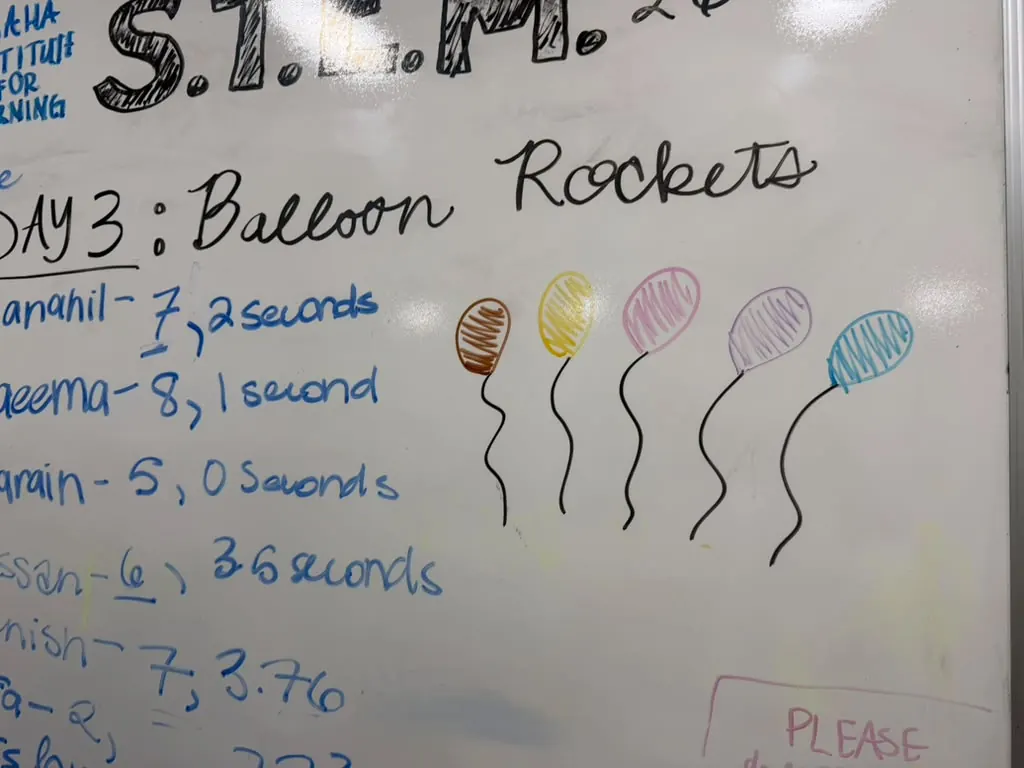 AHA
TITUTE
FOR
RNING
S.T.E.M.
DAY 3: Balloon Rockets
anahil - 7, 2 seconds
aeema - 8, 1 second
arain - 5, 0 Seconds
ssan - 6, 36 seconds
nish - 7, 3.76
a - 2,
PLEASE